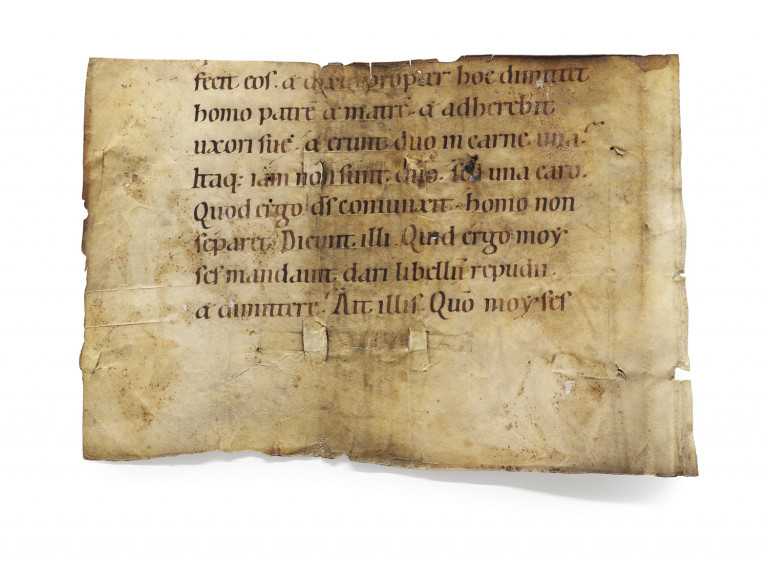 fecit eos. & dixit. propter hoc dimittet
homo patrē & matrē. & adherebit
uxori suę. & erunt duo in carne una.
Itaq; iam non sunt duo. sed una caro.
Quod ergo d̄s coniunxit. homo non
separet. Dicunt illi. Quid ergo moy
ses mandauit dari libellū repudii.
& dimittere. Ait illis. Quō moyses